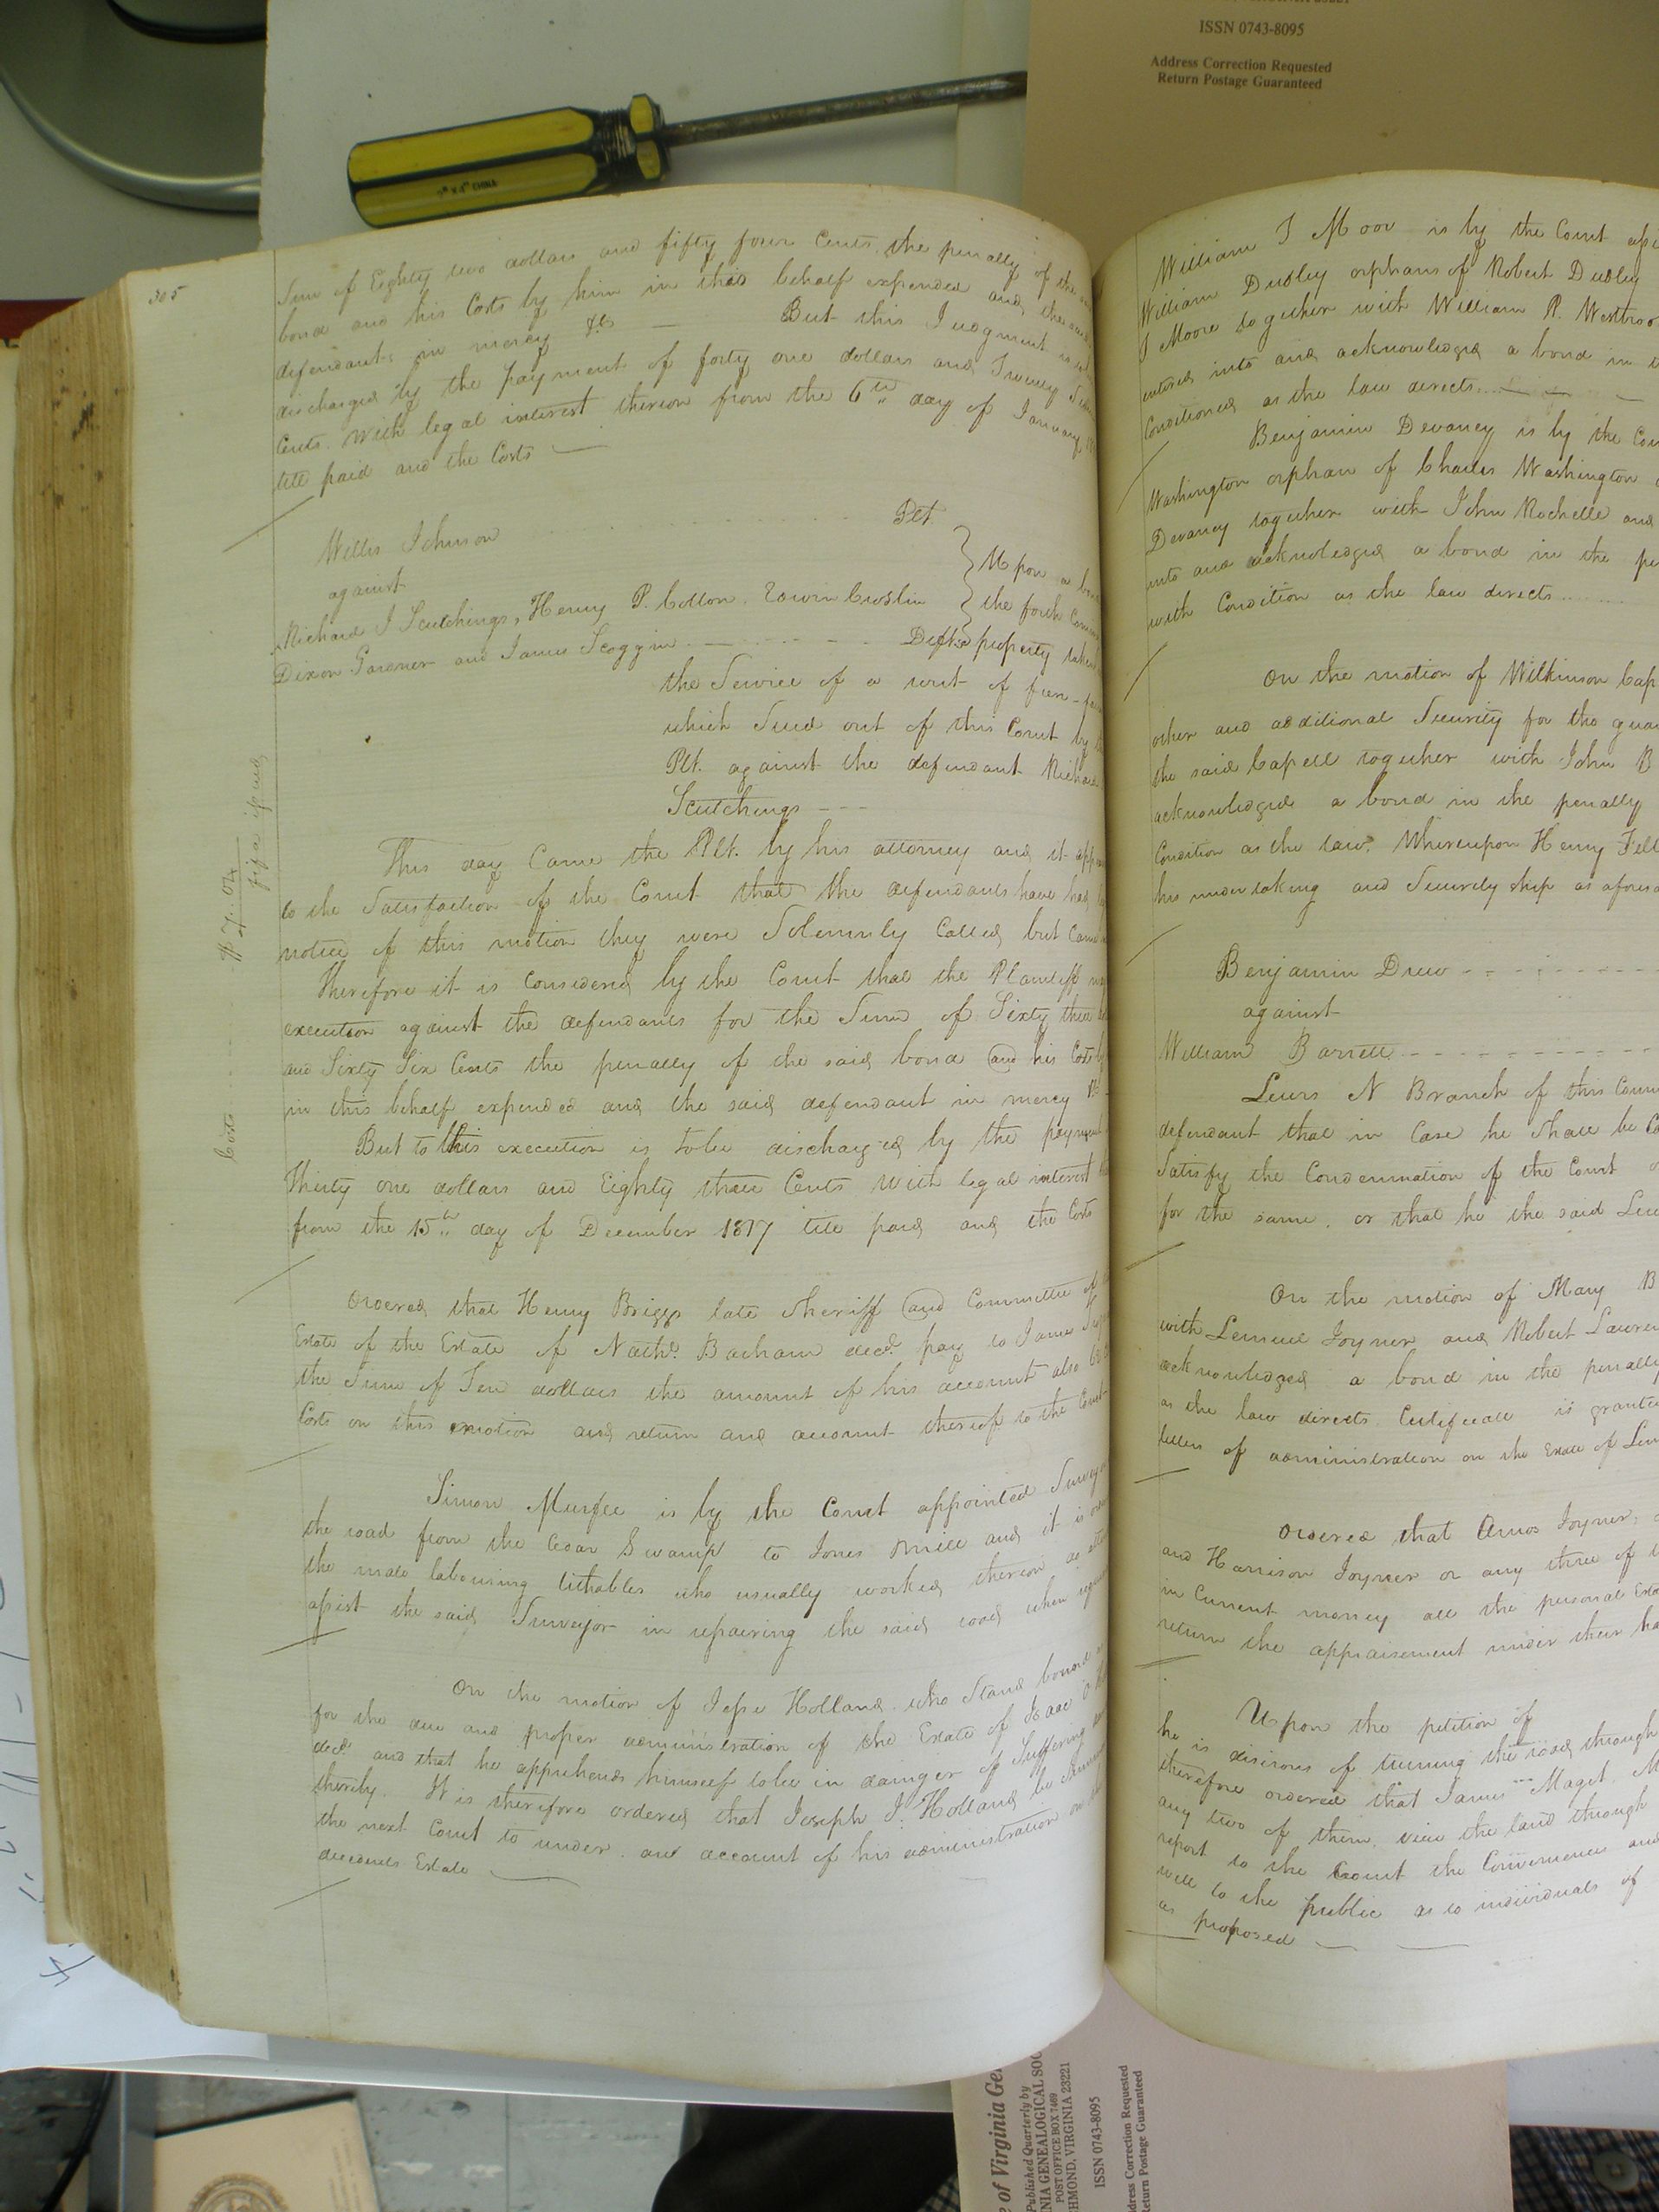 ISSN 0743-8095
Address Correction Requested
Return Postage Guaranteed
CHINA
305
Sum of Eighty two dollars and fifty four Cents the penalty of the
bond and his Costs by him in this behalf expended and the said
defendants in mercy &c — But this Judgment is
discharged by the payment of forty one dollars and Twenty
Cents. With legal interest thereon from the 6th day of January
till paid and the Costs —
Willis Johnson Plt.
against
Richard J Scutchings, Henry P. Cotton, Edwin Croslin
Dixon Gardner and James Scoggin Defts
Upon a
the forth
property taken
the Service of a writ of
which Sued out of this Court by
Plt. against the defendant Richard
Scutchings
This day Came the Plt. by his attorney and it
to the Satisfaction of the Court that the defendants have had
notice of this motion they were Solemnly Called but Came
Therefore it is Considered by the Court that the Plaintiff
execution against the defendants for the Sum of Sixty three
and Sixty Six Cents the penalty of the said bond and his Costs
in this behalf expended and the said defendant in mercy
But to this execution is to be discharged by the payment
Thirty one dollars and Eighty three Cents with legal interest
from the 15th day of December 1817 till paid and the Costs
Costs
fi fa issued
Ordered that Henry Briggs late Sheriff and Committee of
Estate of the Estate of Nathl. Barham decd. pay to James
the Sum of Ten dollars the amount of his account also
Costs on this motion and return and account thereof to the Court
Simon Murfee is by the Court appointed Surveyor
the road from the Cedar Swamp to Jones Mill and it is
the male labouring tithables who usually worked thereon do
assist the said Surveyor in repairing the said road when
On the motion of Jesse Holland who Stand bound
for the due and proper administration of the Estate of Isaac
decd. and that he apprehends himself to be in danger of Suffering
thereby. It is therefore ordered that Joseph J. Holland be
the next Court to under an account of his administration on
deceaseds Estate
William J Moor is by the Court
William Dudley orphans of Robert Dudley
J Moore together with William P.
entered into and acknowledged a bond in
Conditioned as the law directs
Benjamin Devaney is by the
Washington orphan of Charles Washington
Devaney together with John Rochelle and
into and acknowledged a bond in the
with Condition as the law directs
On the motion of Wilkinson
other and additional Security for the
the said Capell together with John B
acknowledged a bond in the penalty
Condition as the law. Whereupon Henry
his undertaking and Security ship as
Benjamin Drew
against
William Barrett
Lewis N Branch of this
defendant that in Case he Shall be
Satisfy the Condemnation of the Court
for the same, or that he the said
On the motion of Mary B
with Lemuel Joyner and Robert
acknowledged a bond in the penalty
as the law directs Certificate is
letters of administration on the Estate of
Ordered that Amos Joyner
and Harrison Joyner or any three of
in Current money all the personal
return the appraisement under their
Upon the petition of
he is desirous of turning the road through
therefore ordered that James Maget
any two of them view the land through
report to the Court the Convenience and
well to the public as to individuals of
as proposed
of Virginia
Published Quarterly by
GENEALOGICAL
POST OFFICE BOX 7469
VIRGINIA 23221
ISSN 0743-8095
Address Correction Requested
Return Postage Guaranteed